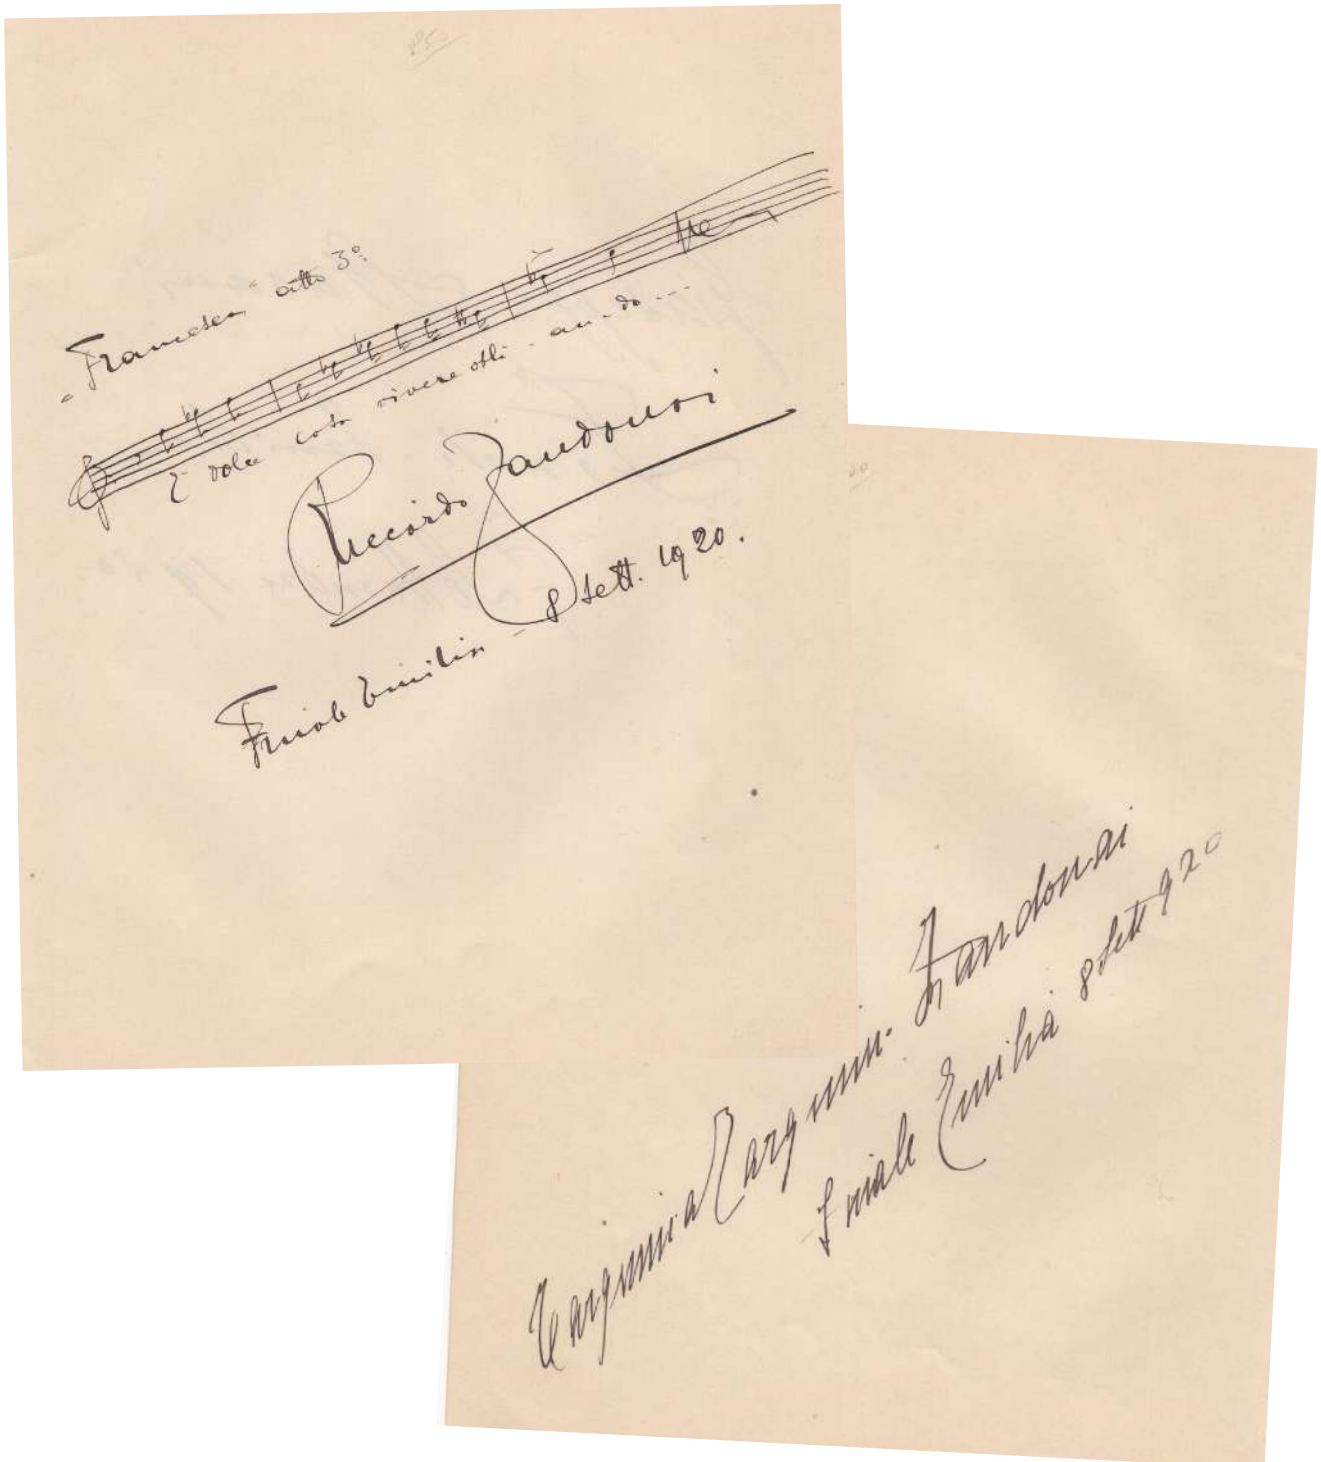 850
"Francesca" atto 3º:
È dolce cosa vivere obli - an - do ...
Riccardo Zandonai
Finale Emilia - 8 Sett. 1920.
Tarquinia Tarquini. Zandonai
Finale Emilia 8 Sett 920